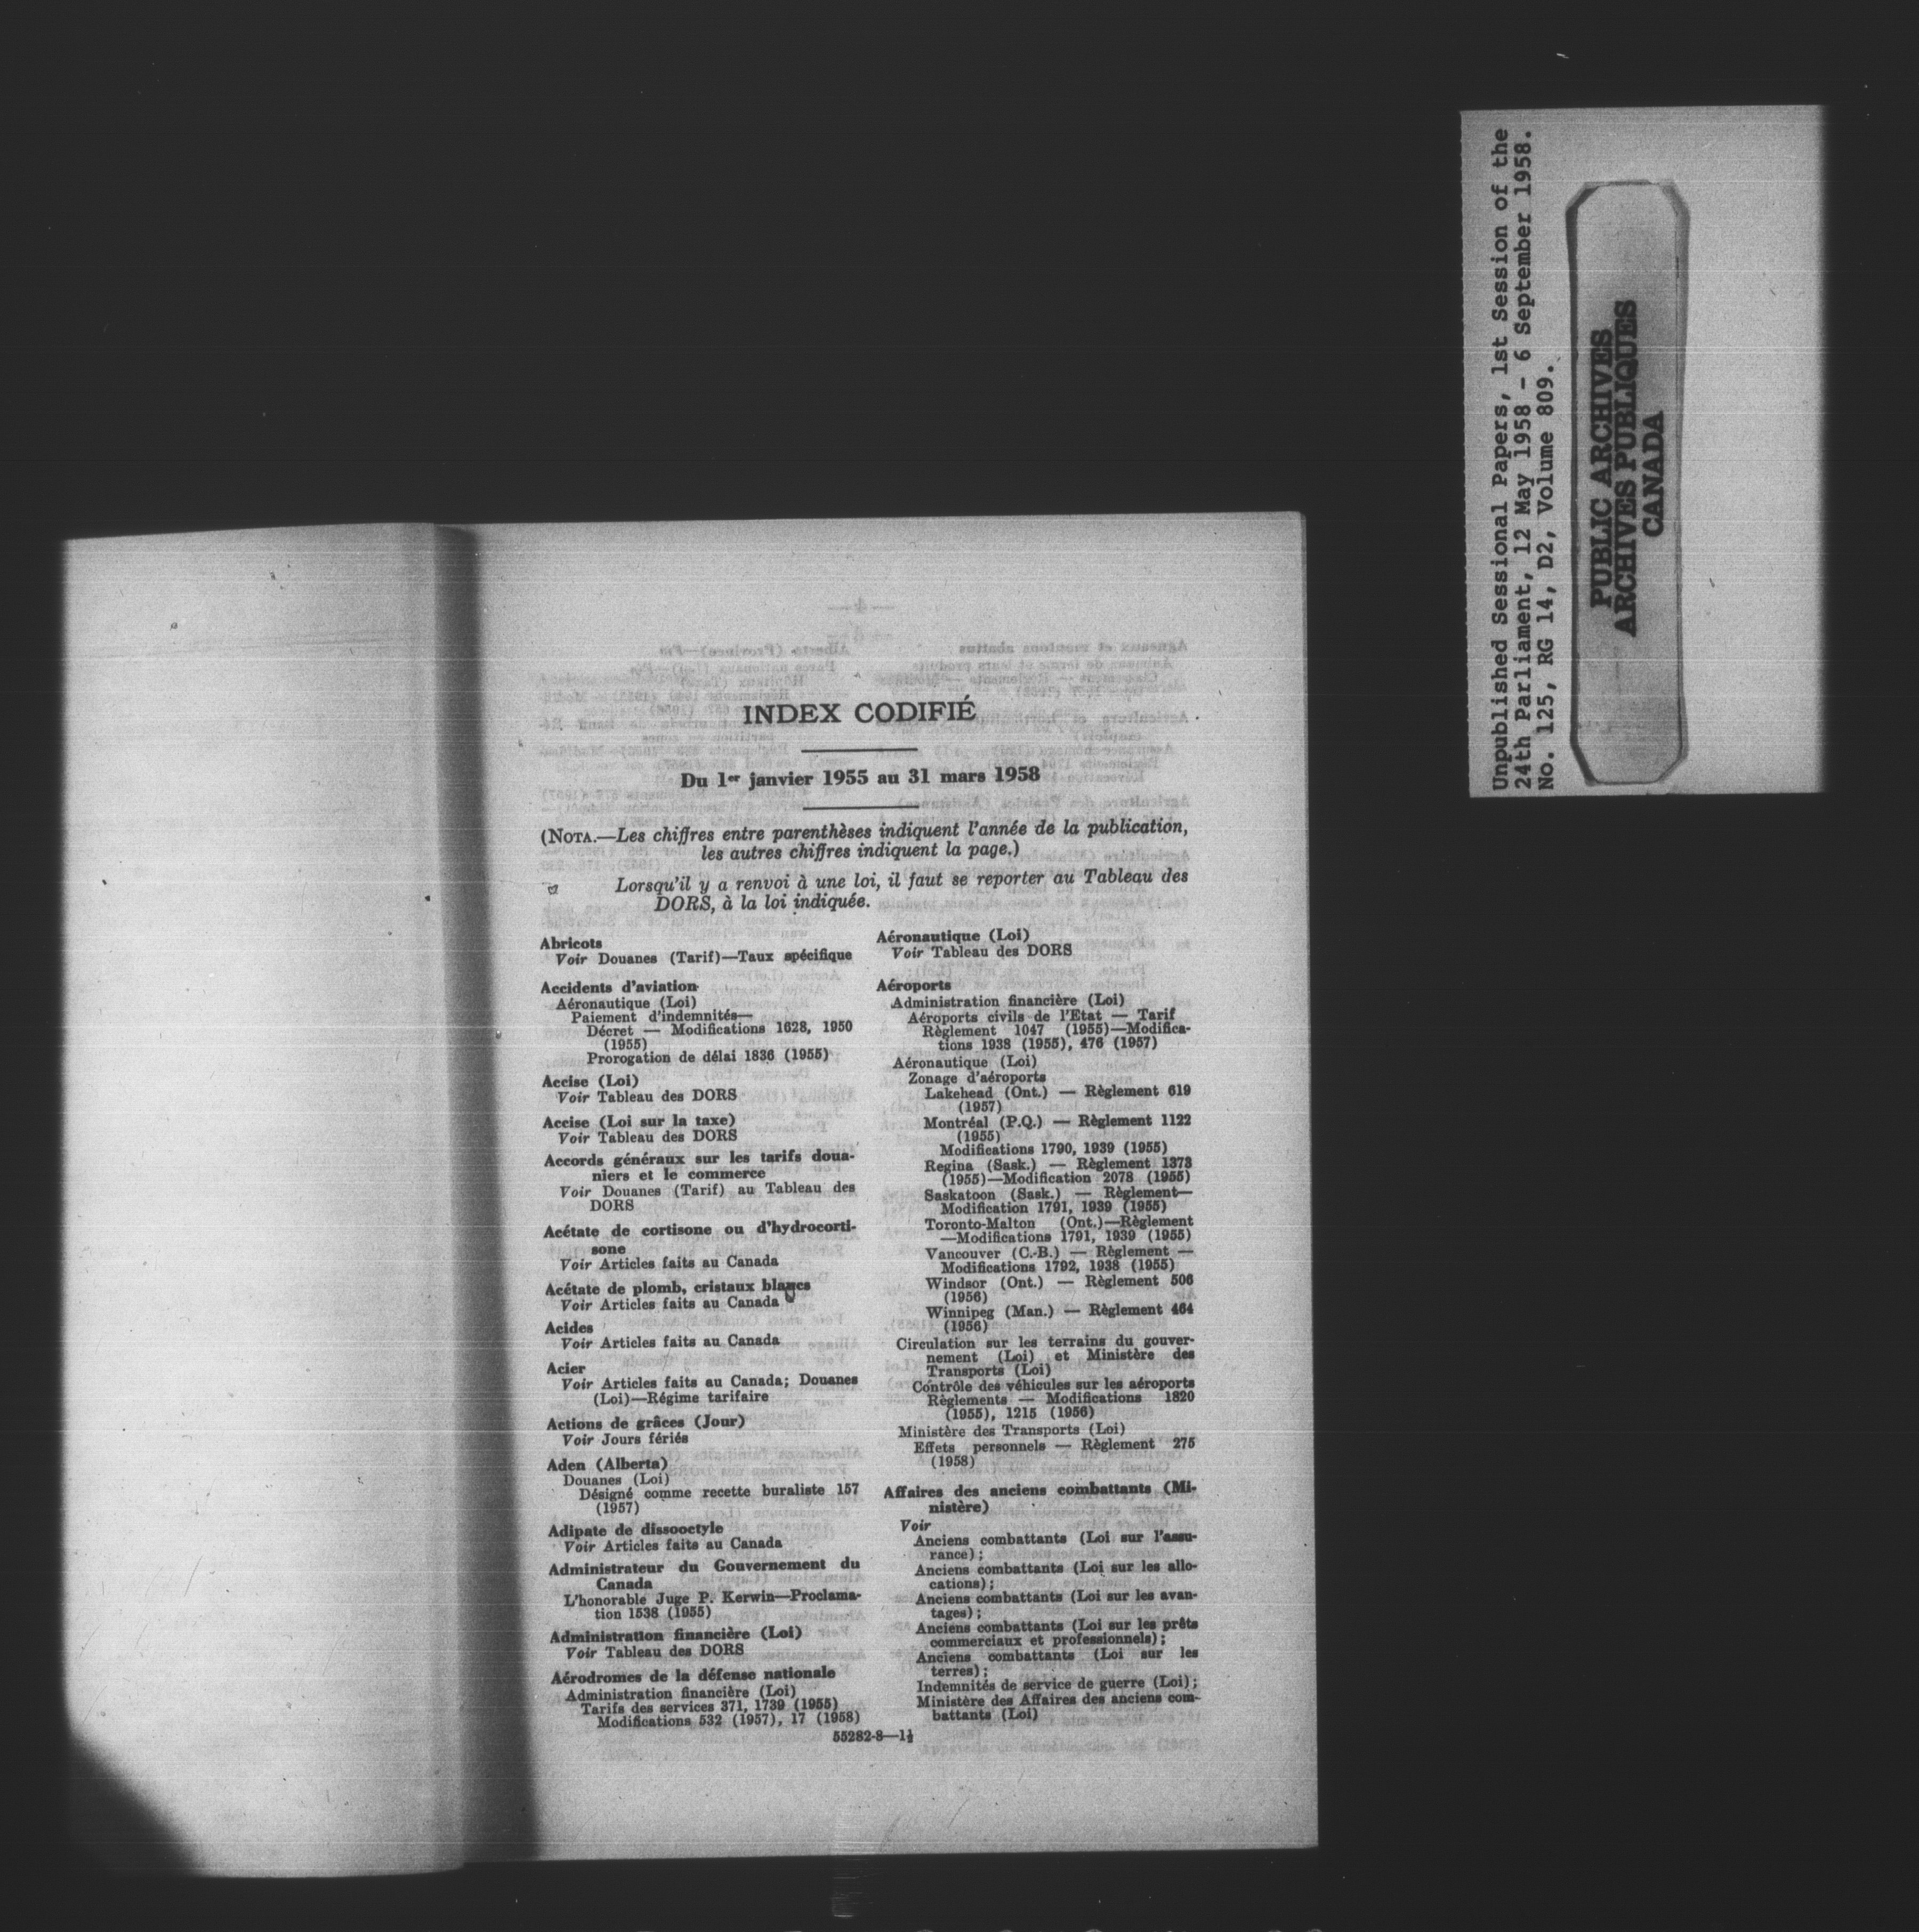 INDEX CODIFIÉ
Du 1er janvier 1955 au 31 mars 1958
(NOTA.—Les chiffres entre parenthèses indiquent l'année de la publication,
les autres chiffres indiquent la page.)
Lorsqu'il y a renvoi à une loi, il faut se reporter au Tableau des
DORS, à la loi indiquée.
Abricots
Voir Douanes (Tarif)—Taux spécifique
Accidents d'aviation
Aéronautique (Loi)
Paiement d'indemnités—
Décret — Modifications 1628, 1950
(1955)
Prorogation de délai 1836 (1955)
Accise (Loi)
Voir Tableau des DORS
Accise (Loi sur la taxe)
Voir Tableau des DORS
Accords généraux sur les tarifs doua-
niers et le commerce
Voir Douanes (Tarif) au Tableau des
DORS
Acétate de cortisone ou d'hydrocorti-
sone
Voir Articles faits au Canada
Acétate de plomb, cristaux blancs
Voir Articles faits au Canada
Acides
Voir Articles faits au Canada
Acier
Voir Articles faits au Canada; Douanes
(Loi)—Régime tarifaire
Actions de grâces (Jour)
Voir Jours fériés
Aden (Alberta)
Douanes (Loi)
Désigné comme recette buraliste 157
(1957)
Adipate de dissooctyle
Voir Articles faits au Canada
Administrateur du Gouvernement du
Canada
L'honorable Juge P. Kerwin—Proclama-
tion 1538 (1955)
Administration financière (Loi)
Voir Tableau des DORS
Aérodromes de la défense nationale
Administration financière (Loi)
Tarifs des services 371, 1739 (1955)
Modifications 532 (1957), 17 (1958)
Aéronautique (Loi)
Voir Tableau des DORS
Aéroports
Administration financière (Loi)
Aéroports civils de l'Etat — Tarif
Règlement 1047 (1955)—Modifica-
tions 1938 (1955), 476 (1957)
Aéronautique (Loi)
Zonage d'aéroports
Lakehead (Ont.) — Règlement 619
(1957)
Montréal (P.Q.) — Règlement 1122
(1955)
Modifications 1790, 1939 (1955)
Regina (Sask.) — Règlement 1373
(1955)—Modification 2078 (1955)
Saskatoon (Sask.) — Règlement—
Modification 1791, 1939 (1955)
Toronto-Malton (Ont.)—Règlement
—Modifications 1791, 1939 (1955)
Vancouver (C.-B.) — Règlement —
Modifications 1792, 1938 (1955)
Windsor (Ont.) — Règlement 506
(1956)
Winnipeg (Man.) — Règlement 464
(1956)
Circulation sur les terrains du gouver-
nement (Loi) et Ministère des
Transports (Loi)
Contrôle des véhicules sur les aéroports
Règlements — Modifications 1820
(1955), 1215 (1956)
Ministère des Transports (Loi)
Effets personnels — Règlement 275
(1958)
Affaires des anciens combattants (Mi-
nistère)
Voir
Anciens combattants (Loi sur l'assu-
rance);
Anciens combattants (Loi sur les allo-
cations);
Anciens combattants (Loi sur les avan-
tages);
Anciens combattants (Loi sur les prêts
commerciaux et professionnels);
Anciens combattants (Loi sur les
terres);
Indemnités de service de guerre (Loi);
Ministère des Affaires des anciens com-
battants (Loi)
55282-8—1½
Unpublished Sessional Papers, 1st Session of the
24th Parliament, 12 May 1958 - 6 September 1958.
No. 125, RG 14, D2, Volume 809.
PUBLIC ARCHIVES
ARCHIVES PUBLIQUES
CANADA